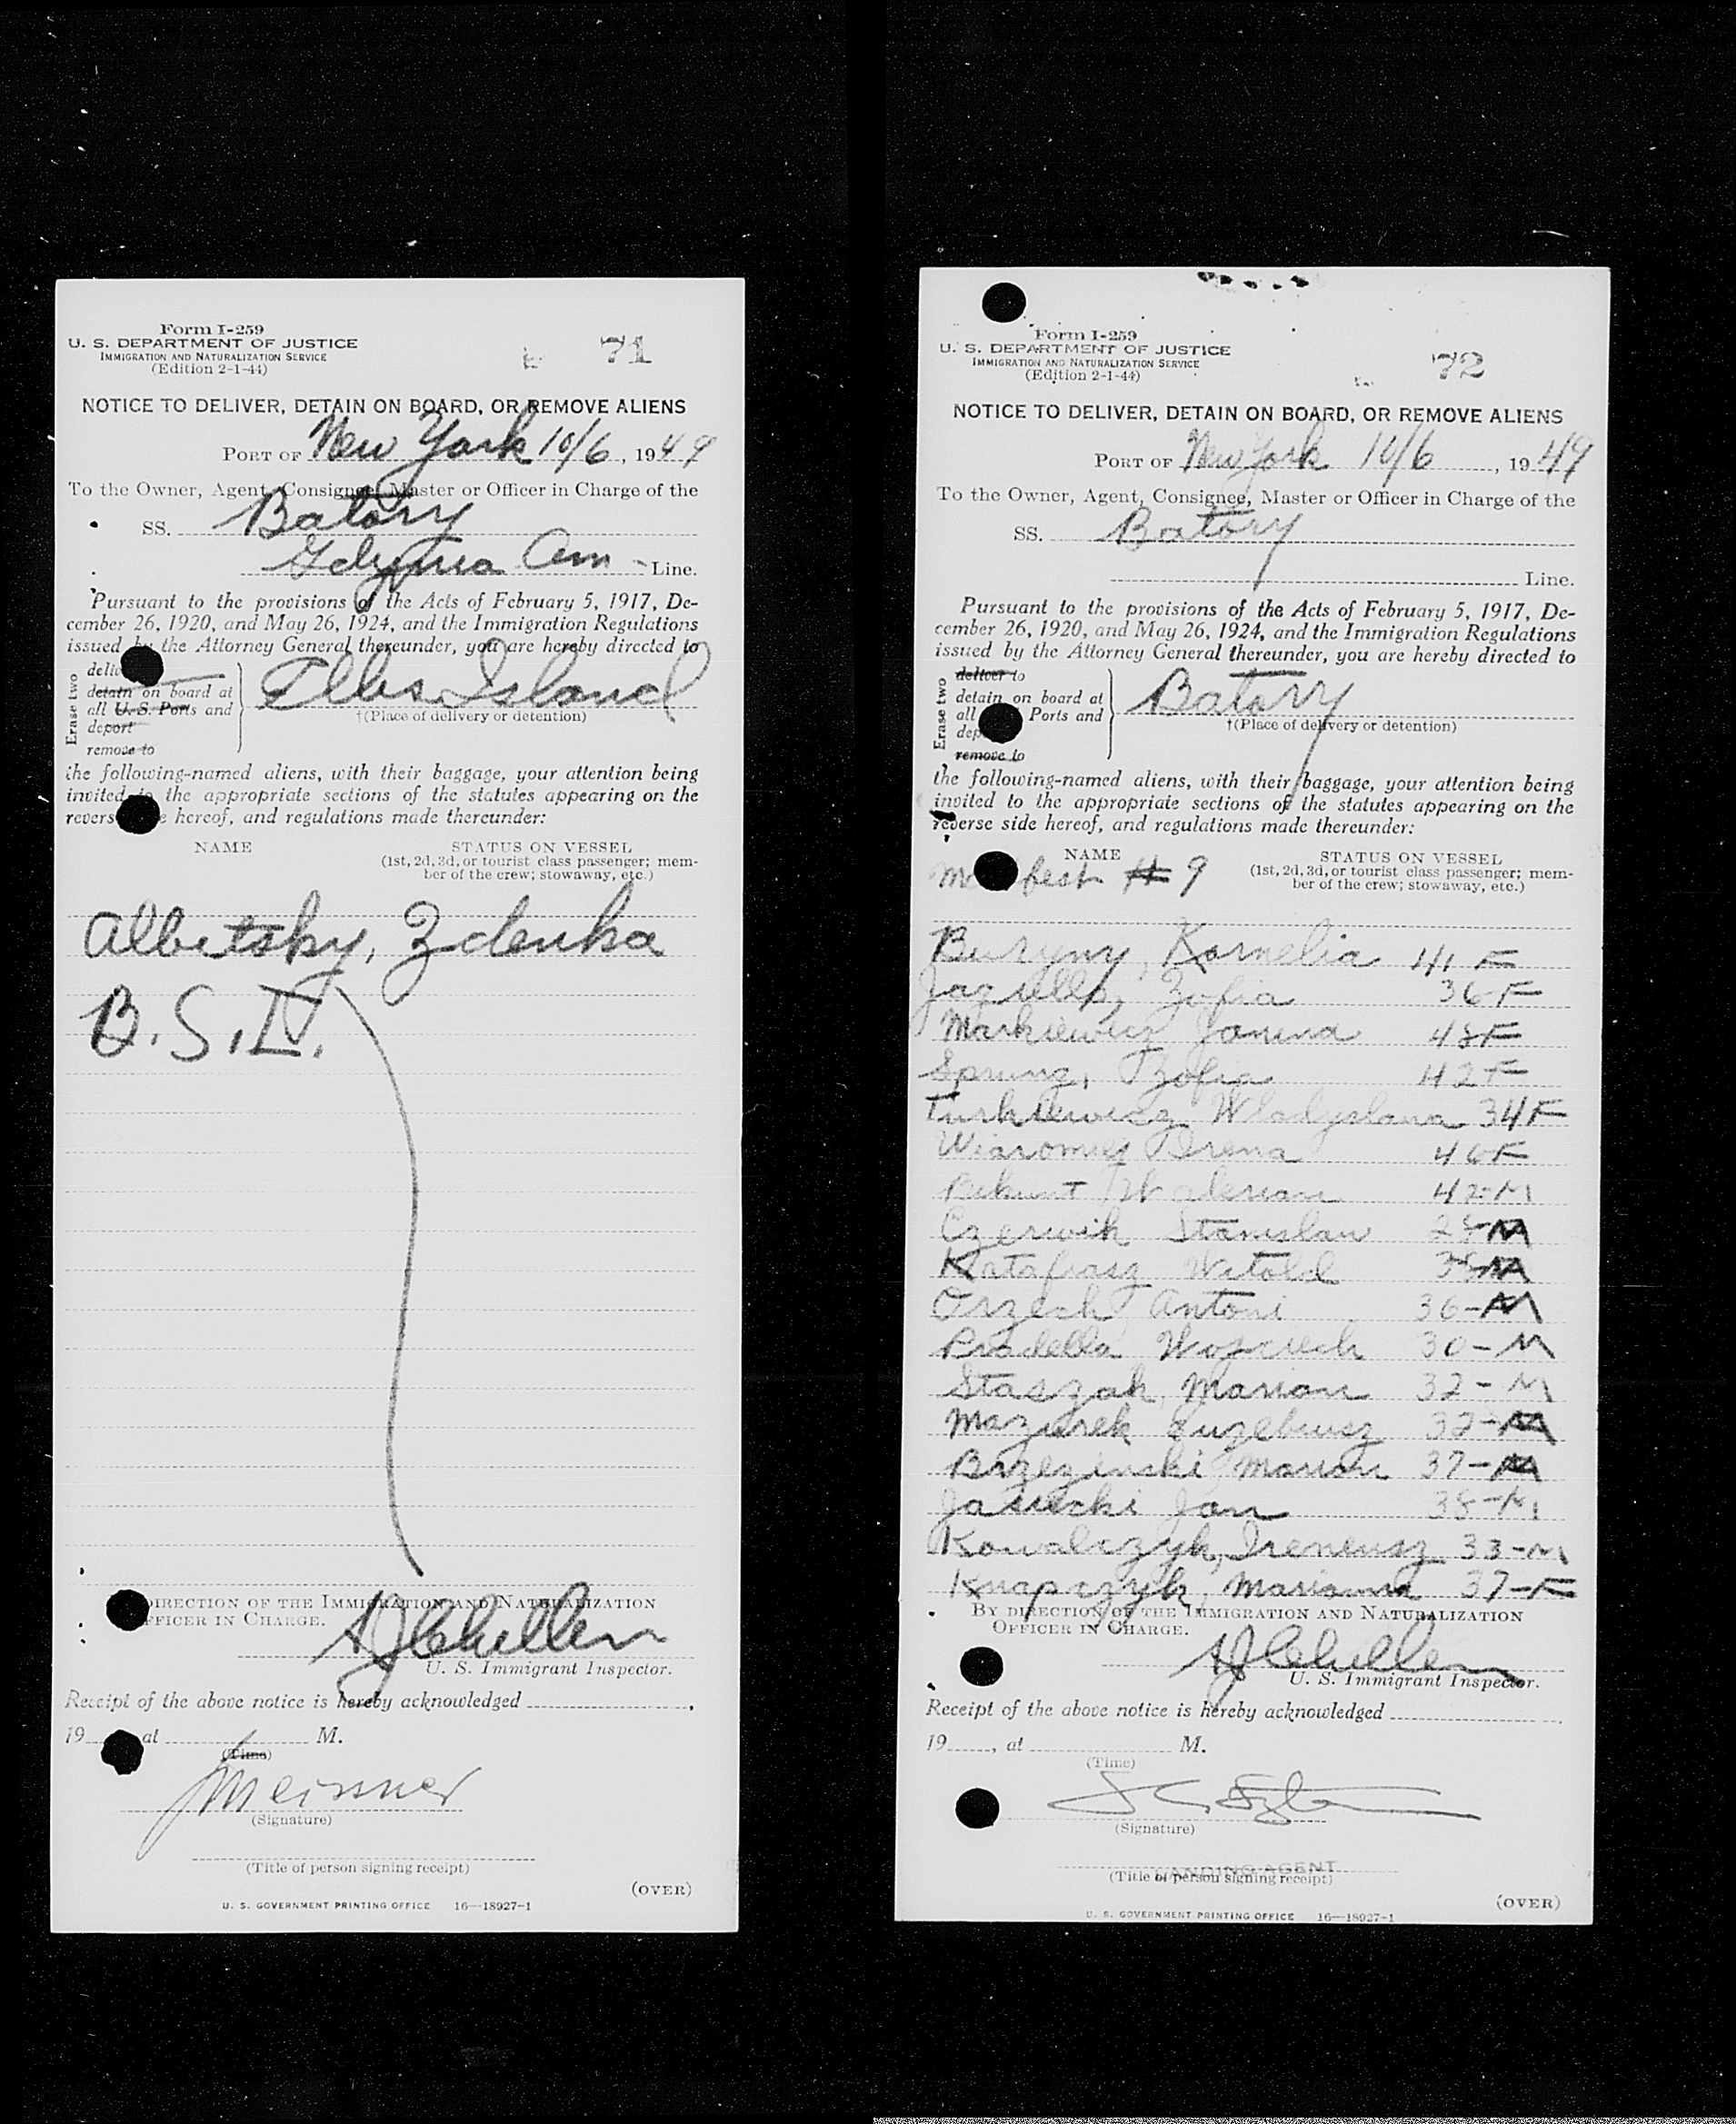 Form I-259
U. S. DEPARTMENT OF JUSTICE
IMMIGRATION AND NATURALIZATION SERVICE
(Edition 2-1-44)
71
NOTICE TO DELIVER, DETAIN ON BOARD, OR REMOVE ALIENS
PORT OF New York 10/6, 1949
To the Owner, Agent, Consignee, Master or Officer in Charge of the
SS. Batory
Gdynia Am - Line.
Pursuant to the provisions of the Acts of February 5, 1917, De-
cember 26, 1920, and May 26, 1924, and the Immigration Regulations
issued by the Attorney General thereunder, you are hereby directed to
Erase two
detain on board at
all U. S. Ports and
deport
remove to
Ellis Island
†(Place of delivery or detention)
the following-named aliens, with their baggage, your attention being
invited to the appropriate sections of the statutes appearing on the
hereof, and regulations made thereunder:
NAME
STATUS ON VESSEL
(1st, 2d, 3d, or tourist class passenger; mem-
ber of the crew; stowaway, etc.)
Albetsky, Zdenka
B.S.I.
DIRECTION OF THE IMMIGRATION AND NATURALIZATION
OFFICER IN CHARGE.
U. S. Immigrant Inspector.
Receipt of the above notice is hereby acknowledged
19 at M.
(Time)
Meissner
(Signature)
(Title of person signing receipt)
(OVER)
U. S. GOVERNMENT PRINTING OFFICE 16—18927-1
Form I-259
U. S. DEPARTMENT OF JUSTICE
IMMIGRATION AND NATURALIZATION SERVICE
(Edition 2-1-44)
72
NOTICE TO DELIVER, DETAIN ON BOARD, OR REMOVE ALIENS
PORT OF New York 10/6, 1949
To the Owner, Agent, Consignee, Master or Officer in Charge of the
SS. Batory
Line.
Pursuant to the provisions of the Acts of February 5, 1917, De-
cember 26, 1920, and May 26, 1924, and the Immigration Regulations
issued by the Attorney General thereunder, you are hereby directed to
Erase two
deliver to
detain on board at
all Ports and
remove to
Batory
†(Place of delivery or detention)
the following-named aliens, with their baggage, your attention being
invited to the appropriate sections of the statutes appearing on the
reverse side hereof, and regulations made thereunder:
NAME
STATUS ON VESSEL
(1st, 2d, 3d, or tourist class passenger; mem-
ber of the crew; stowaway, etc.)
# 9
Kornelia 41 F
Zofia 36 F
Markiewicz Janina 48 F
Sprung, Zofia 42 F
Turkiewicz Wladyslawa 34 F
Irena 46 F
Walerian 42-M
Czerwik Stanislaw M
Katafiasz Witold M
Orzech Antoni 36-M
Pradella Wojciech 30-M
Staszak, Marian 32-M
Mazurek Euzebiusz 32-M
Brzezinski Marian 37-M
Jasiecki Jan 38-M
Kowalczyk, Ireneusz 33-M
Knapczyk, Marianna 37-F
BY DIRECTION OF THE IMMIGRATION AND NATURALIZATION
OFFICER IN CHARGE.
U. S. Immigrant Inspector.
Receipt of the above notice is hereby acknowledged
19, at M.
(Time)
(Signature)
LANDING AGENT
(Title of person signing receipt)
(OVER)
U. S. GOVERNMENT PRINTING OFFICE 16—18927-1